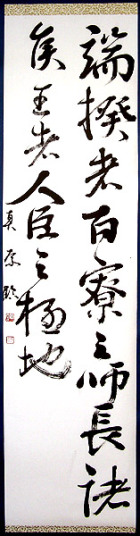 端揆者百寮之師長諸
侯王者人臣之極地
真原